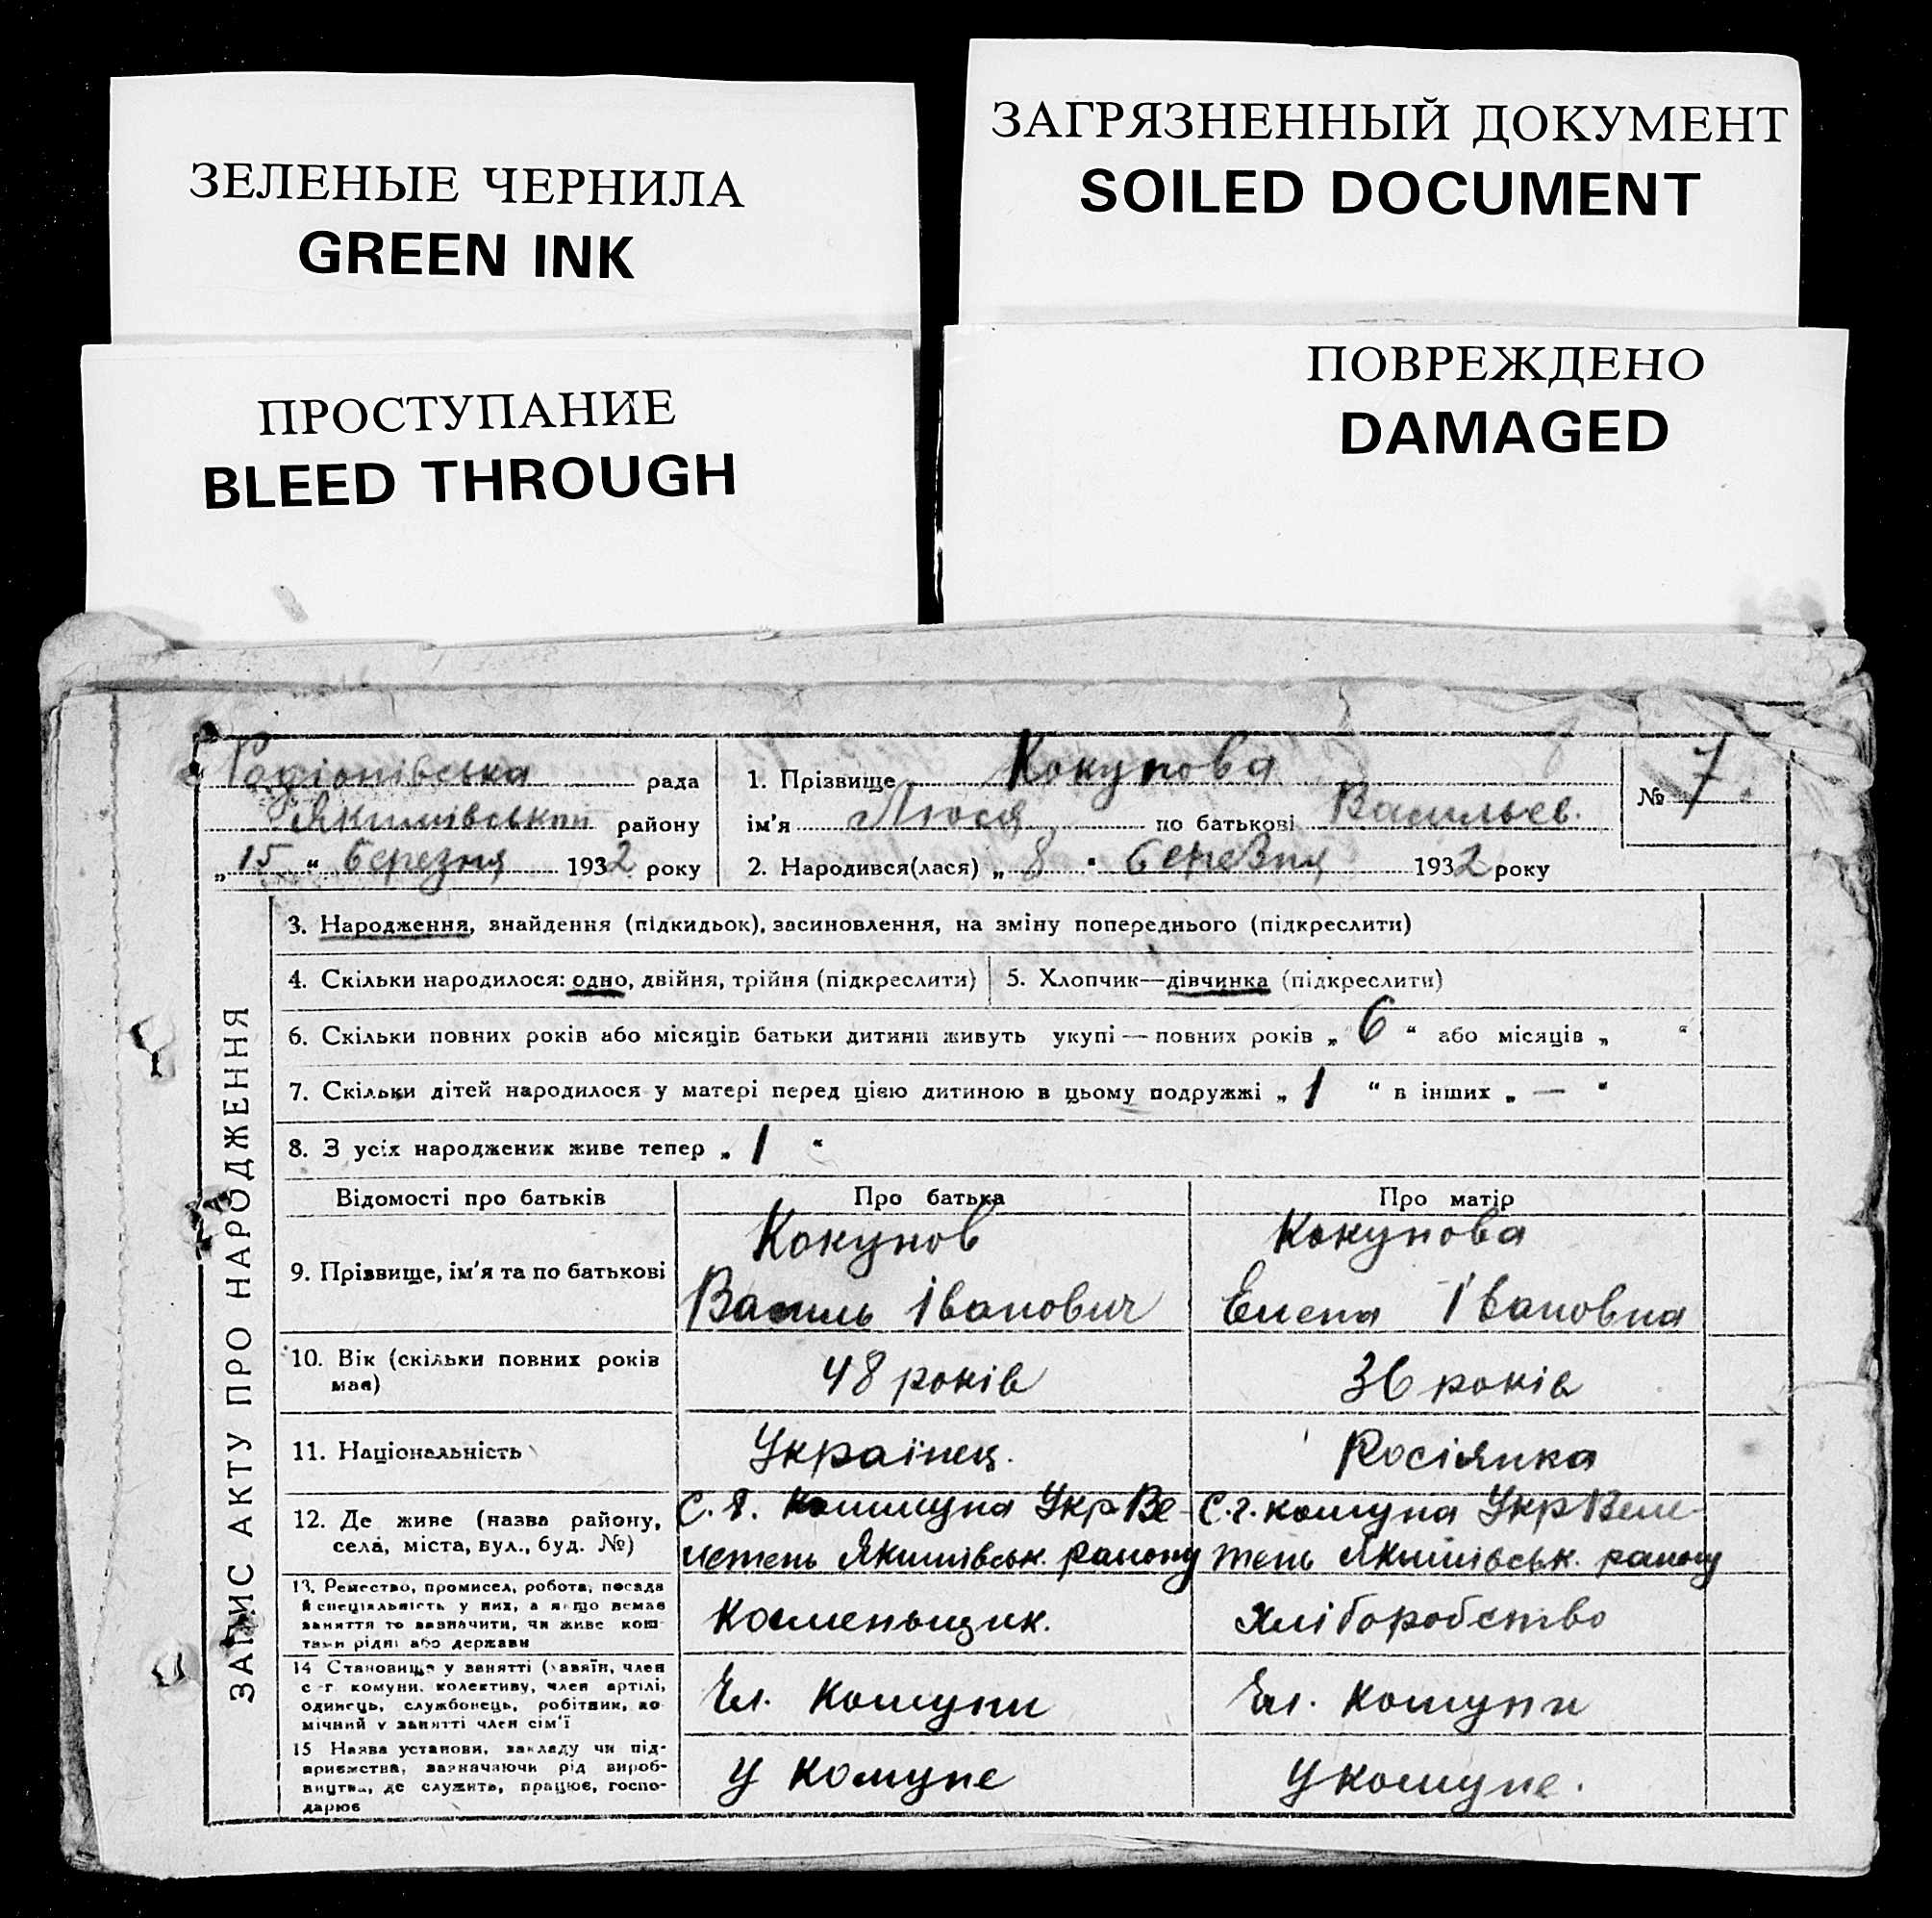 ЗЕЛЕНЫЕ ЧЕРНИЛА
GREEN INK
ЗАГРЯЗНЕННЫЙ ДОКУМЕНТ
SOILED DOCUMENT
ПРОСТУПАНИЕ
BLEED THROUGH
ПОВРЕЖДЕНО
DAMAGED
Радіонівська рада
Якимівський району
„15“ березня 1932 року
1. Прізвище Кокунова
ім'я Люся по батькові Васильев.
2. Народився(лася) „8" березня 1932 року
№ 7
ЗАПИС АКТУ ПРО НАРОДЖЕННЯ
3. Народження, знайдення (підкидьок), засиновлення, на зміну попереднього (підкреслити)
4. Скільки народилося: одно, двійня, трійня (підкреслити)
5. Хлопчик—дівчинка (підкреслити)
6. Скільки повних років або місяців батьки дитини живуть укупі — повних років „6“ або місяців „ “
7. Скільки дітей народилося у матері перед цією дитиною в цьому подружжі „1“ в інших „—"
8. З усіх народжених живе тепер „1"
Відомості про батьків Про батька Про матір
9. Прізвище, ім'я та по батькові
Кокунов
Василь Іванович
Кокунова
Елена Івановна
10. Вік (скільки повних років
має)
48 років
36 років
11. Національність
Українец.
Росіянка
12. Де живе (назва району,
села, міста, вул., буд. №)
С.г. коммуна УкрВе-
летень Якимівськ. району
С.г. комуна УкрВеле-
тень Якимівськ. району
13. Ремество, промисел, робота, посада
й спеціяльність у них, а якщо немає
заняття то зазначити, чи живе кош-
тами рідні або держави
Каменьщик.
Хлібо​робство
14 Становище у занятті (хазяїн, член
с-г комуни, колективу, член артілі,
одинець, службонець, робітник, по-
мічний у занятті член сім'ї
Чл. Комуни
Чл. Комуни
15 Назва установи, закладу чи під-
приємства, зазначаючи рід вироб-
ництва, де служить, працює, госпо-
дарює
У Комуне
У комуне.